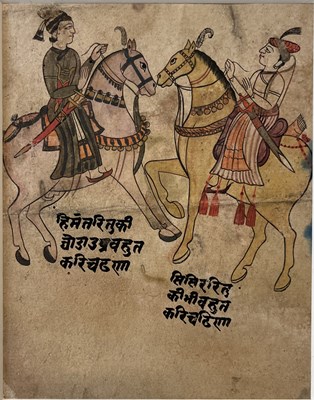 हिमंतरितुकी
घोडाउपरवहुत
करिचढणा
सिसिररितु
कीभीवहुत
करिचढिणा